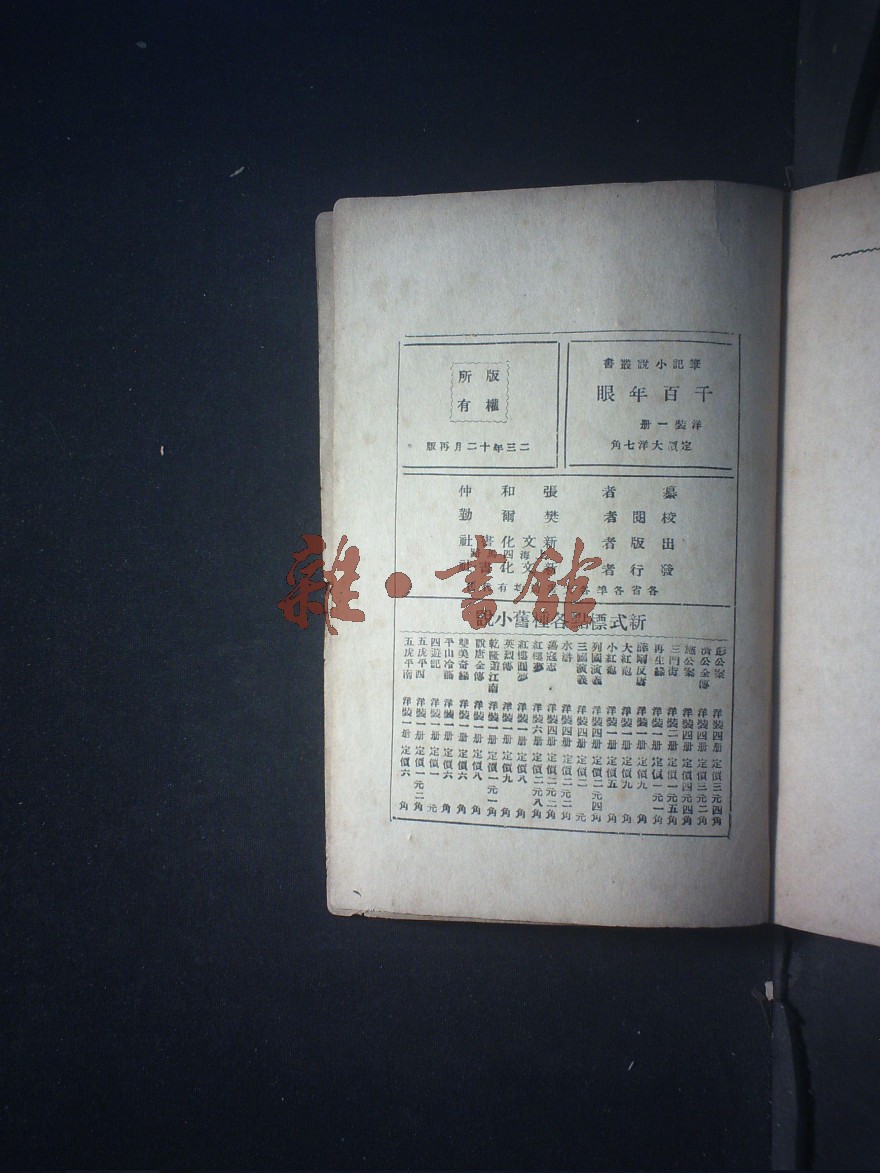 筆記小說叢書
千百年眼
洋裝一册
定價大洋七角
版權
所有
二三年十二月再版
纂者 張和仲
校閱者 樊爾勤
出版者 新文化書社
發行者 新文化書社
新式標點各種舊小說
彭公案 洋裝四册 定價三元四角
濟公全傳 洋裝四册 定價三元二角
施公案 洋裝四册 定價四元四角
三門街 洋裝二册 定價一元五角
再生緣 洋裝一册 定價一元一角
薛剛反唐 洋裝一册 定價九角
大紅袍 洋裝一册 定價九角
小紅袍 洋裝一册 定價五角
列國演義 洋裝四册 定價二元四角
三國演義 洋裝四册 定價二元
水滸 洋裝四册 定價二元二角
蕩寇志 洋裝四册 定價二元二角
紅樓夢 洋裝六册 定價二元八角
紅樓圓夢 洋裝一册 定價八角
英烈傳 洋裝一册 定價九角
乾隆遊江南 洋裝一册 定價一元一角
說唐全傳 洋裝一册 定價八角
雙美奇緣 洋裝一册 定價六角
平山冷燕 洋裝一册 定價六角
四遊記 洋裝一册 定價一元
五虎平西 洋裝一册 定價一元二角
五虎平南 洋裝一册 定價六角
雜·書館